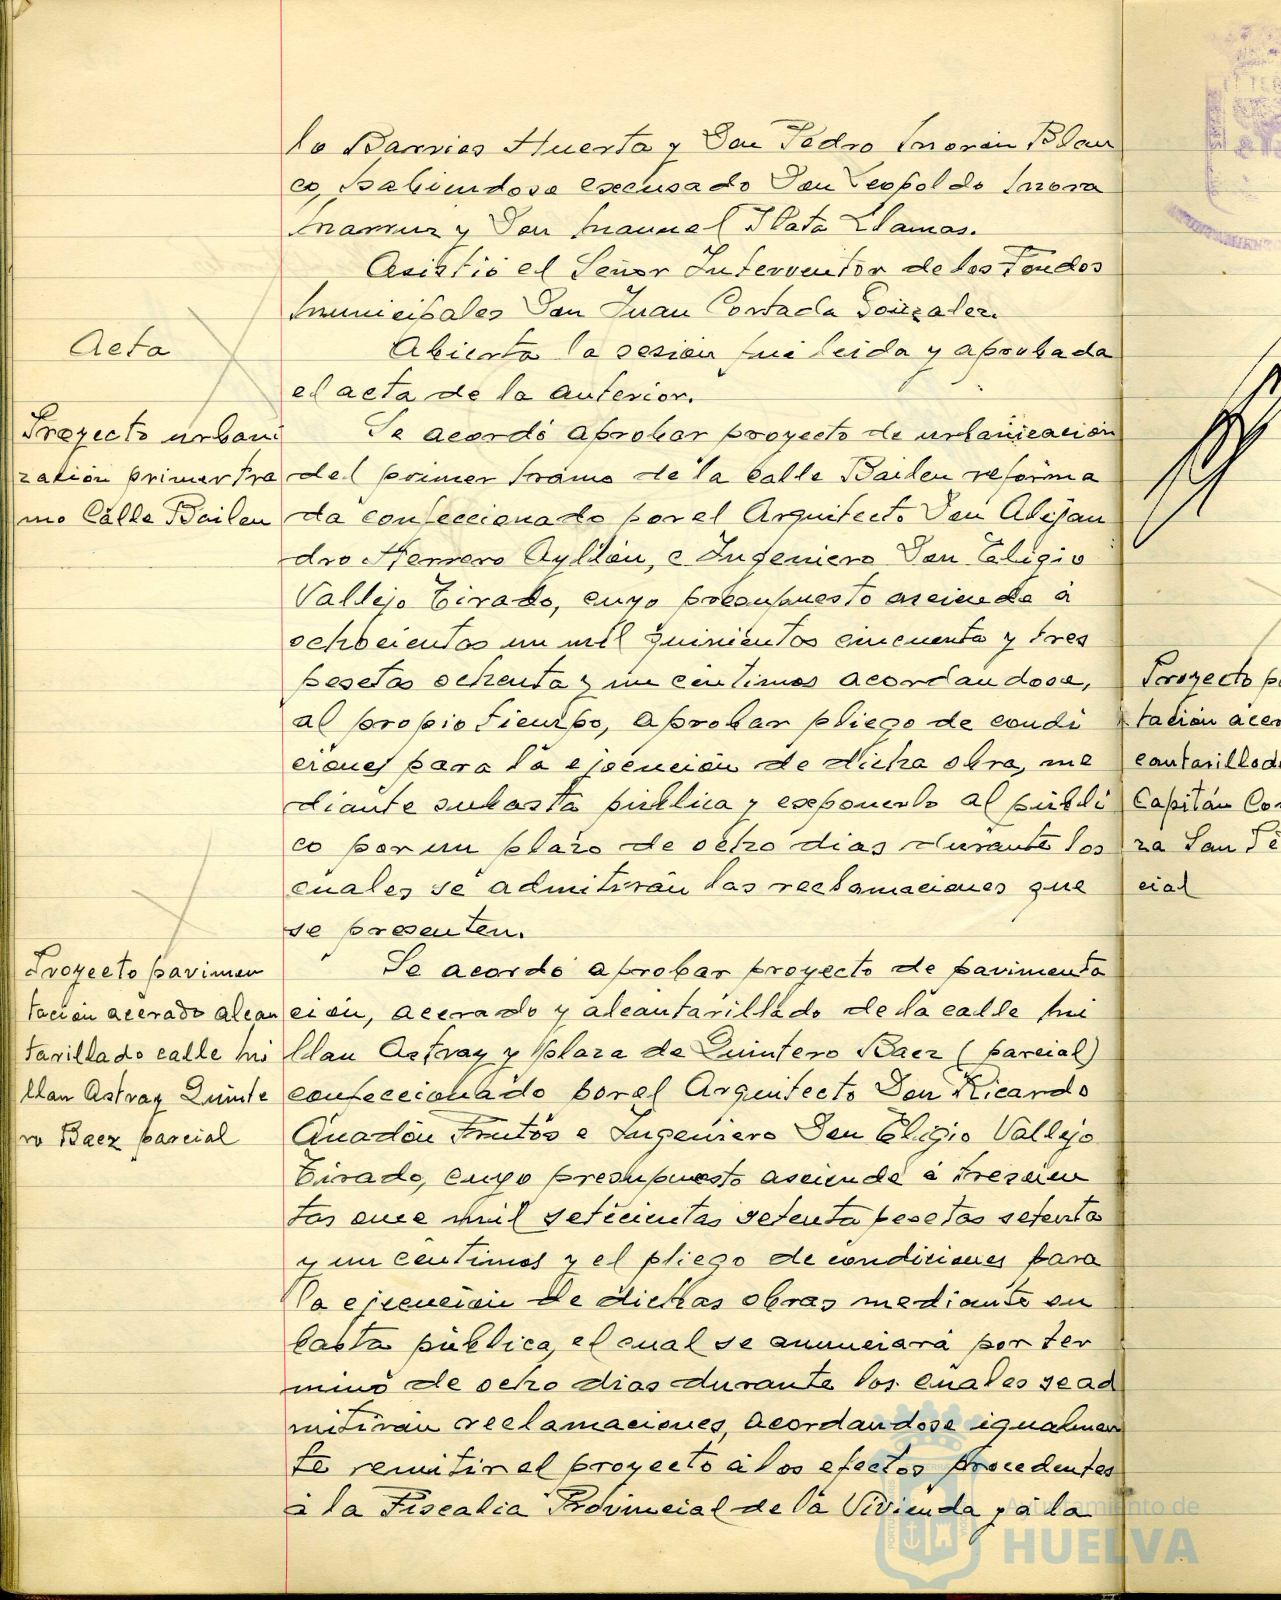 lo Barrios Huerta y Don Pedro Morón Blan
co, habiendose excusado Don Leopoldo Mora
y Don Manuel Plata Llamas.
Asistió el Señor Interventor de los Fondos
Municipales Don Juan Cortada Gonzalez.
Acta
Abierta la sesión fué leida y aprobada
el acta de la anterior.
Proyecto urbani
zación primer tra
mo Calle Bailen
Se acordó aprobar proyecto de urbanización
del primer tramo de la calle Bailen reforma
da confeccionado por el Arquitecto Don Alejan
dro Herrero Ayllón, e Ingeniero Don Eligio
Vallejo Tirado, cuyo presupuesto asciende á
ochocientas un mil quinientos cincuenta y tres
pesetas ochenta y un centimos acordandose,
al propio tiempo, aprobar pliego de condi
ciones para la ejecución de dicha obra, me
diante subasta pública y exponerlo al públi
co por un plazo de ocho dias durante los
cuales se admitirán las reclamaciones que
se presenten.
Proyecto pavimen
tación acerado alcan
tarillado calle Mi
llan Astray Quinte
ro Baez parcial
Se acordó aprobar proyecto de pavimenta
ción, acerado y alcantarillado de la calle Mi
llan Astray y plaza de Quintero Baez (parcial)
confeccionado por el Arquitecto Don Ricardo
Anadón Frutos e Ingeniero Don Eligio Vallejo
Tirado, cuyo presupuesto asciende á trescien
tas once mil setecientas setenta pesetas setenta
y un centimos y el pliego de condiciones para
la ejecución de dichas obras mediante su
basta pública, el cual se anunciará por ter
mino de ocho dias durante los cuales se ad
mitirán reclamaciones, acordandose igualmen
te remitir el proyecto á los efectos procedentes
á la Fiscalia Provincial de la Vivienda y á la
Proyecto
tación acer
cantarillado
Capitán Cor
za San Pe
cial
Ayuntamiento de
HUELVA